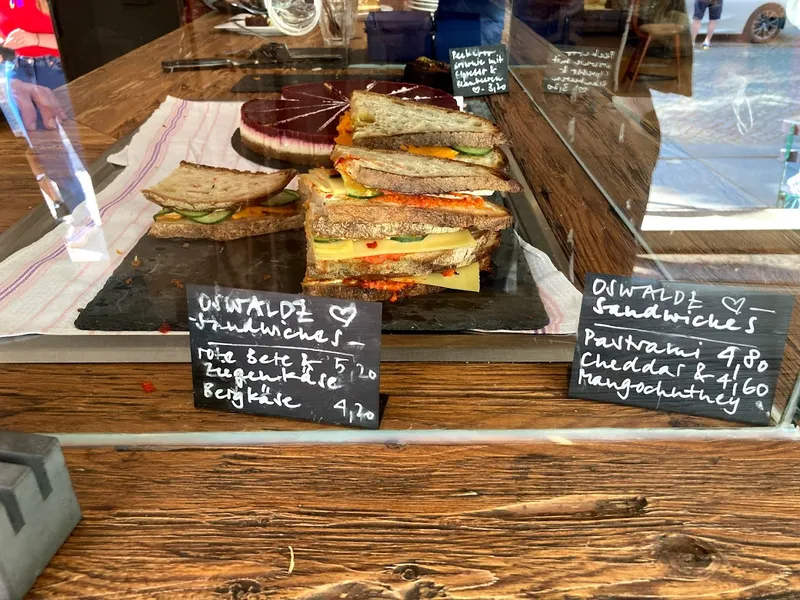 Brownie mit
♡ - 3,20
OSWALDZ ♡
Sandwiches
rote Bete & 5,20
Ziegenkäse
Bergkäse 4,20
OSWALDZ ♡
Sandwiches
Pastrami 4,80
Cheddar & 4,60
Mangochutney